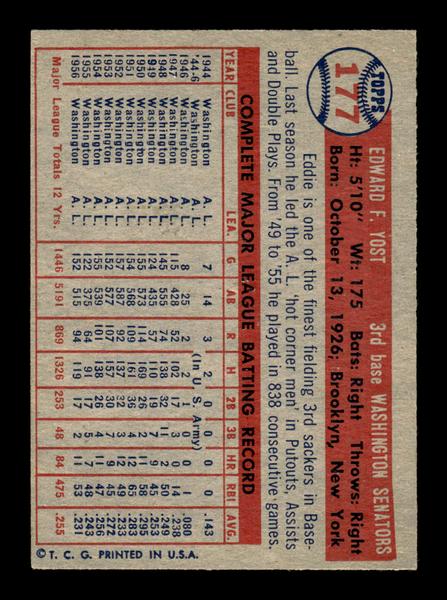 TOPPS
177
EDWARD F. YOST 3rd base WASHINGTON SENATORS
Ht: 5'10" Wt: 175 Bats: Right Throws: Right
Born: October 13, 1926; Brooklyn, New York
Eddie is one of the finest fielding 3rd sackers in Base-
ball. Last season he led the A. L. 'hot corner men' in Putouts, Assists
and Double Plays. From '49 to '55 he played in 838 consecutive games.
COMPLETE MAJOR LEAGUE BATTING RECORD
YEAR CLUB LEA. G AB R H 2B 3B HR RBI AVG.
1944 Washington A. L. 7 14 3 2 0 0 0 0 .143
'44-6 (In U. S. Army)
1946 Washington A. L. 8 25 2 2 1 0 0 1 .080
1947 Washington A. L. 115 428 52 102 17 3 0 14 .238
1948 Washington A. L. 145 555 74 138 32 11 2 50 .249
1949 Washington A. L. 124 435 57 110 19 7 9 45 .253
1950 Washington A. L. 155 573 114 169 26 2 11 58 .295
1951 Washington A. L. 154 568 109 161 36 4 12 65 .283
1952 Washington A. L. 157 587 92 137 32 3 12 49 .233
1953 Washington A. L. 152 577 107 157 30 7 9 45 .272
1954 Washington A. L. 155 539 101 138 26 4 11 47 .256
1955 Washington A. L. 122 375 64 91 17 5 7 48 .243
1956 Washington A. L. 152 515 94 119 17 2 11 53 .231
Major League Totals 12 Yrs. 1446 5191 869 1326 253 48 84 475 .255
© T. C. G. PRINTED IN U.S.A.